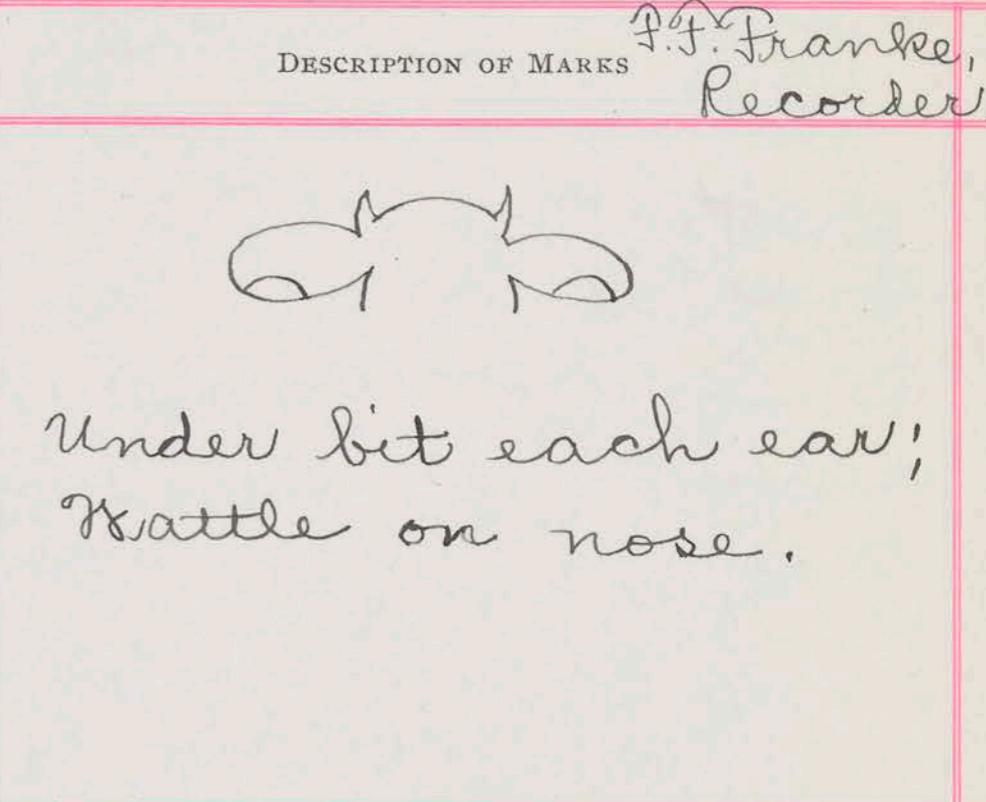 DESCRIPTION OF MARKS
F.F. Franke,
Recorder
Under bit each ear;
Wattle on nose.